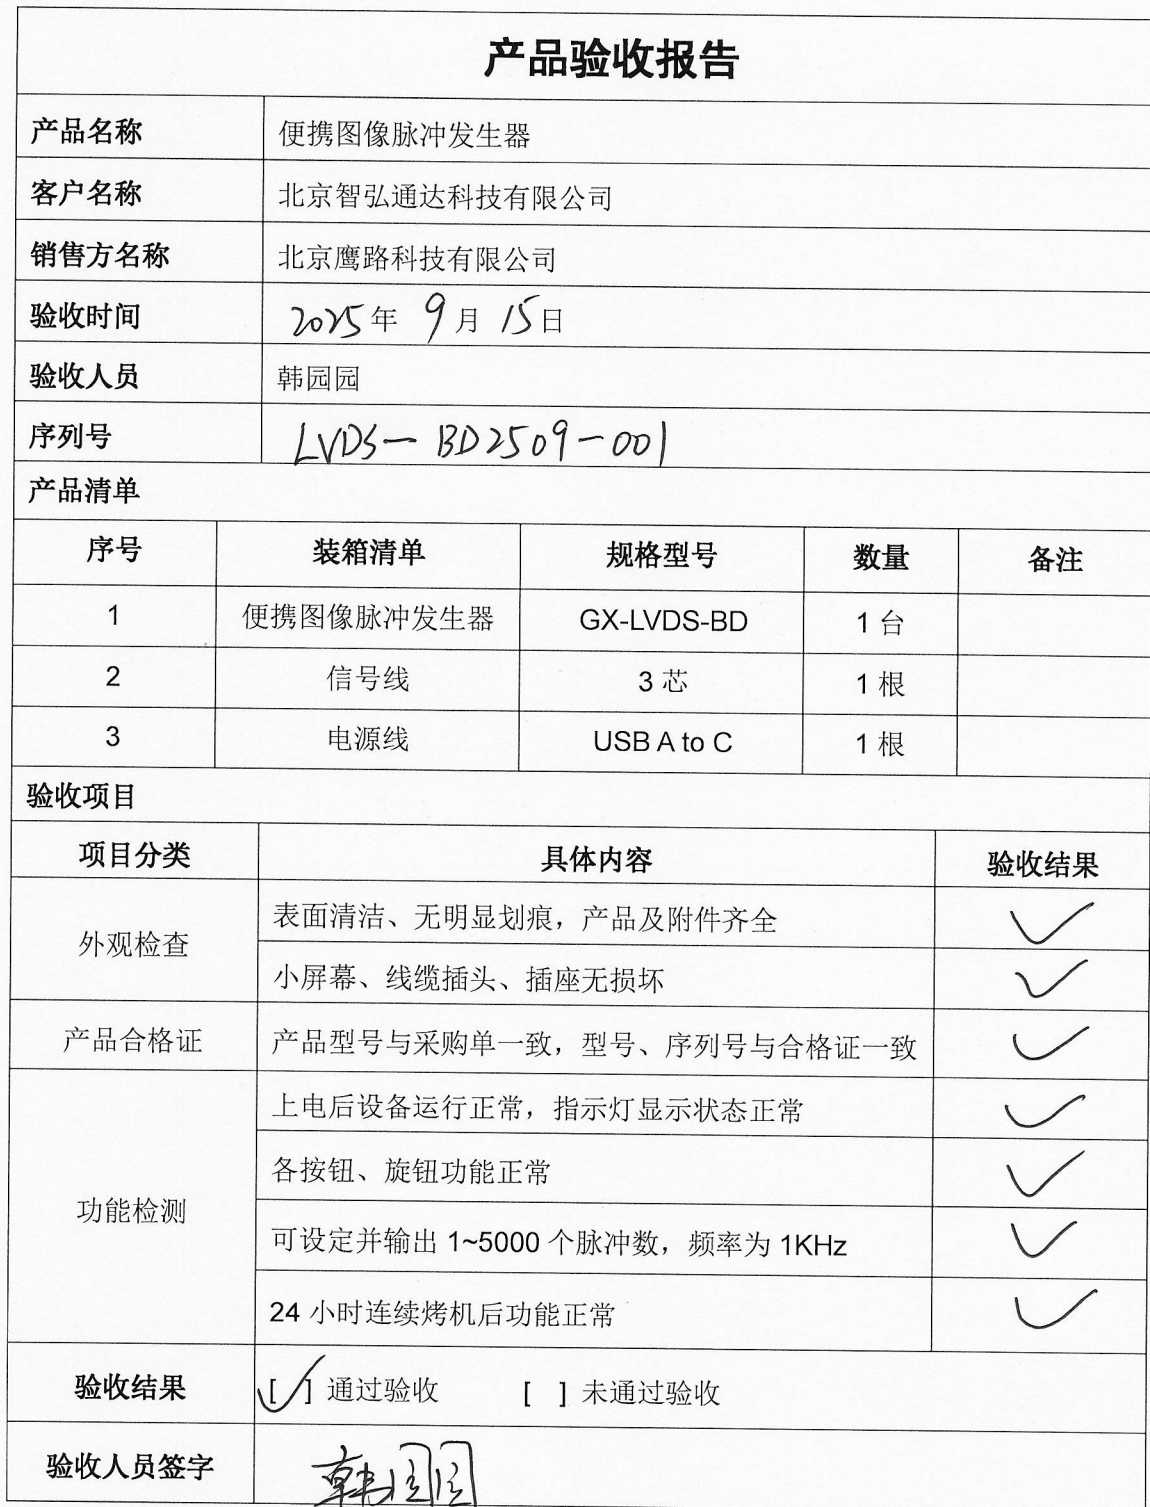 产品验收报告
产品名称 便携图像脉冲发生器
客户名称 北京智弘通达科技有限公司
销售方名称 北京鹰路科技有限公司
验收时间 2025年 9月 15日
验收人员 韩园园
序列号 LVDS-BD2509-001
产品清单
序号 装箱清单 规格型号 数量 备注
1 便携图像脉冲发生器 GX-LVDS-BD 1 台
2 信号线 3 芯 1 根
3 电源线 USB A to C 1 根
验收项目
项目分类 具体内容 验收结果
外观检查 表面清洁、无明显划痕，产品及附件齐全 ✓
小屏幕、线缆插头、插座无损坏 ✓
产品合格证 产品型号与采购单一致，型号、序列号与合格证一致 ✓
功能检测 上电后设备运行正常，指示灯显示状态正常 ✓
各按钮、旋钮功能正常 ✓
可设定并输出 1~5000 个脉冲数，频率为 1KHz ✓
24 小时连续烤机后功能正常 ✓
验收结果 [✓] 通过验收 [ ] 未通过验收
验收人员签字 韩园园